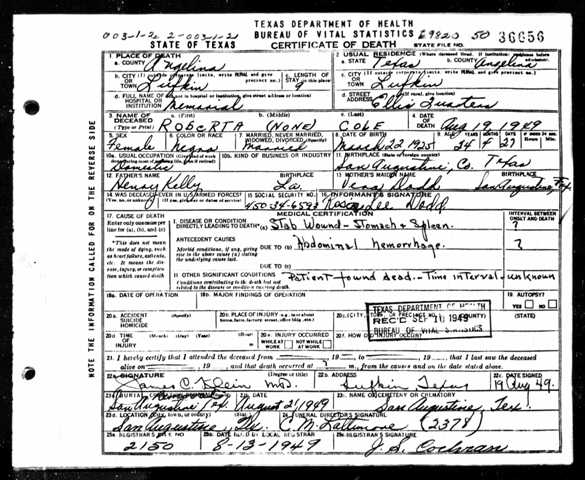 003-1-2 2-003-1-21
TEXAS DEPARTMENT OF HEALTH
BUREAU OF VITAL STATISTICS
STATE OF TEXAS
CERTIFICATE OF DEATH
STATE FILE NO.
50 36656
1. PLACE OF DEATH
a. COUNTY Angelina
2. USUAL RESIDENCE
a. STATE Texas b. COUNTY Angelina
b. CITY OR TOWN Lufkin
c. LENGTH OF STAY 9
c. CITY OR TOWN Lufkin
d. FULL NAME OF HOSPITAL OR INSTITUTION Memorial
d. STREET ADDRESS Ellis Quarters
3. NAME OF DECEASED (Type or Print)
a. (First) ROBERTA b. (Middle) (NONE) c. (Last) COLE
4. DATE OF DEATH Aug 19, 1949
5. SEX Female
6. COLOR OR RACE Negro
7. MARRIED, NEVER MARRIED, WIDOWED, DIVORCED Married
8. DATE OF BIRTH March 22 1925
9. AGE 24 4 27
10a. USUAL OCCUPATION Domestic
10b. KIND OF BUSINESS OR INDUSTRY
11. BIRTHPLACE San Augustine, Co. Texas
12. FATHER'S NAME Henry Kelly
BIRTHPLACE La.
13. MOTHER'S MAIDEN NAME Dodd
BIRTHPLACE San Augustine, Tex
14. WAS DECEASED EVER IN U.S. ARMED FORCES?
15. SOCIAL SECURITY NO. 450-34-6593
16. INFORMANT'S SIGNATURE Lee Dodd
MEDICAL CERTIFICATION
INTERVAL BETWEEN ONSET AND DEATH
17. CAUSE OF DEATH
Enter only one cause per line for (a), (b), and (c)
I. DISEASE OR CONDITION DIRECTLY LEADING TO DEATH (a) Stab Wound - Stomach & Spleen. ?
*This does not mean the mode of dying, such as heart failure, asthenia, etc. It means the disease, injury, or complication which caused death.
ANTECEDENT CAUSES
Morbid conditions, if any, giving rise to the above cause (a) stating the underlying cause last.
DUE TO (b) Abdominal hemorrhage. ?
DUE TO (c)
II OTHER SIGNIFICANT CONDITIONS
Conditions contributing to the death but not related to the disease or condition causing death.
Patient found dead - Time interval - unknown
18a. DATE OF OPERATION
18b. MAJOR FINDINGS OF OPERATION
19. AUTOPSY?
YES NO
20a. ACCIDENT SUICIDE HOMICIDE
20b. PLACE OF INJURY
20c. (CITY, TOWN, OR PRECINCT NO.) (COUNTY) (STATE)
TEXAS DEPARTMENT OF HEALTH
REC'D SEP 10 1949
BUREAU OF VITAL STATISTICS
20d. TIME OF INJURY
20e. INJURY OCCURRED
WHILE AT WORK NOT WHILE AT WORK
20f. HOW DID INJURY OCCUR?
21. I hereby certify that I attended the deceased from 19 to 19 that I last saw the deceased
alive on 19 and that death occurred at m., from the causes and on the date stated above.
22a. SIGNATURE (Degree or title) James C. Klein MD.
22b. ADDRESS Lufkin, Texas
22c. DATE SIGNED 19 Aug 49.
San Augustine, Tex.
23b. DATE August 21 1949
23c. NAME OF CEMETERY OR CREMATORY San Augustine, Tex.
San Augustine, Tex.
24. FUNERAL DIRECTOR'S SIGNATURE C. M. Lattimore (2378)
25a. REGISTRAR'S FILE NO. 2150
25b. DATE REC'D BY LOCAL REGISTRAR 8-13-1949
25c. REGISTRAR'S SIGNATURE J. S. Cochran
NOTE THE INFORMATION CALLED FOR ON THE REVERSE SIDE